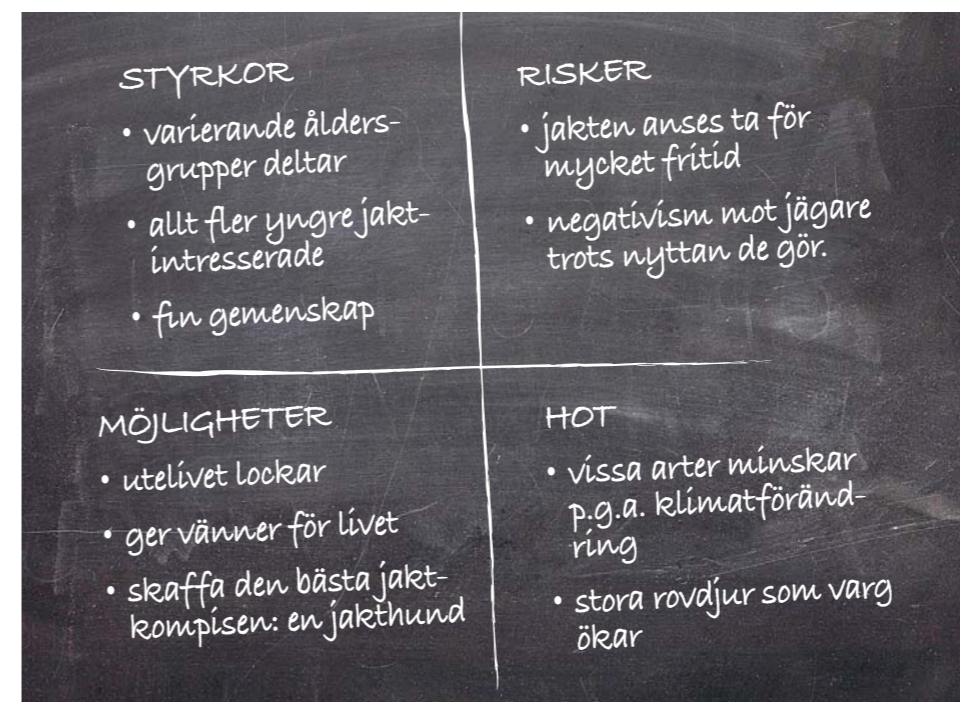 STYRKOR
• varierande ålders-
grupper deltar
• allt fler yngre jakt-
intresserade
• fin gemenskap
RISKER
• jakten anses ta för
mycket fritid
• negativism mot jägare
trots nyttan de gör.
MÖJLIGHETER
• utelivet lockar
• ger vänner för livet
• skaffa den bästa jakt-
kompisen: en jakthund
HOT
• vissa arter minskar
p.g.a. klimatföränd-
ring
• stora rovdjur som varg
ökar